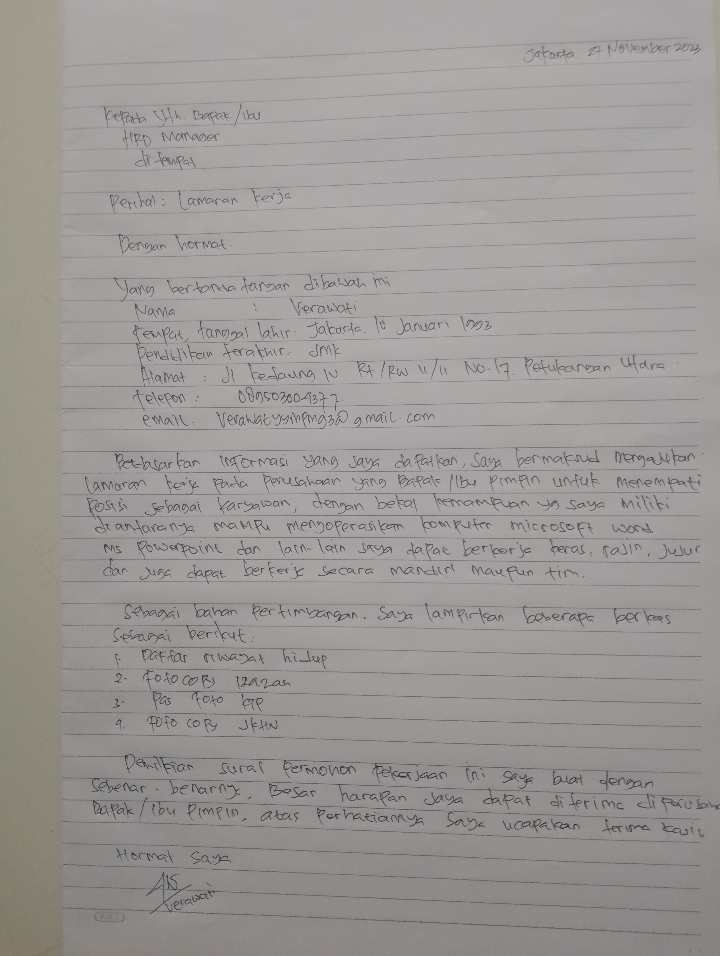 Jakarta. 27 November 2023
Kepada Yth. Bapak/ibu
HRD Manager
di tempat
Perihal: Lamaran kerja
Dengan hormat.
Yang bertanda tangan dibawah ini
Nama : Verawati
Tempat, tanggal lahir: Jakarta. 10 Januari 2003
Pendidikan terakhir. SMK
Alamat : Jl kedaung IV Rt/RW 11/11 No. 17. Petukangan Utara.
Telepon :
email.
Berdasarkan informasi yang saya dapatkan, saya bermaksud mengajukan
lamaran kerja pada perusahaan yang Bapak/Ibu Pimpin untuk menempati
posisi sebagai karyawan, dengan bekal kemampuan yg saya miliki
diantaranya mampu mengoperasikan komputer microsoft word
Ms Powerpoint dan lain-lain saya dapat berkerja keras, rajin, jujur
dan juga dapat berkerja secara mandiri maupun tim.
Sebagai bahan pertimbangan. Saya lampirkan beberapa berkas
Sebagai berikut.
1. Daftar riwayat hidup
2. Foto copy Izazah
3. Pas foto KTP
4. Foto copy SKHN
Demikian surat permohon pekerjaan ini saya buat dengan
sebenar-benarnya. Besar harapan saya dapat diterima
Bapak/ibu pimpin, atas perhatiannya saya ucapakan terima kasih
Hormat saya
Verawati